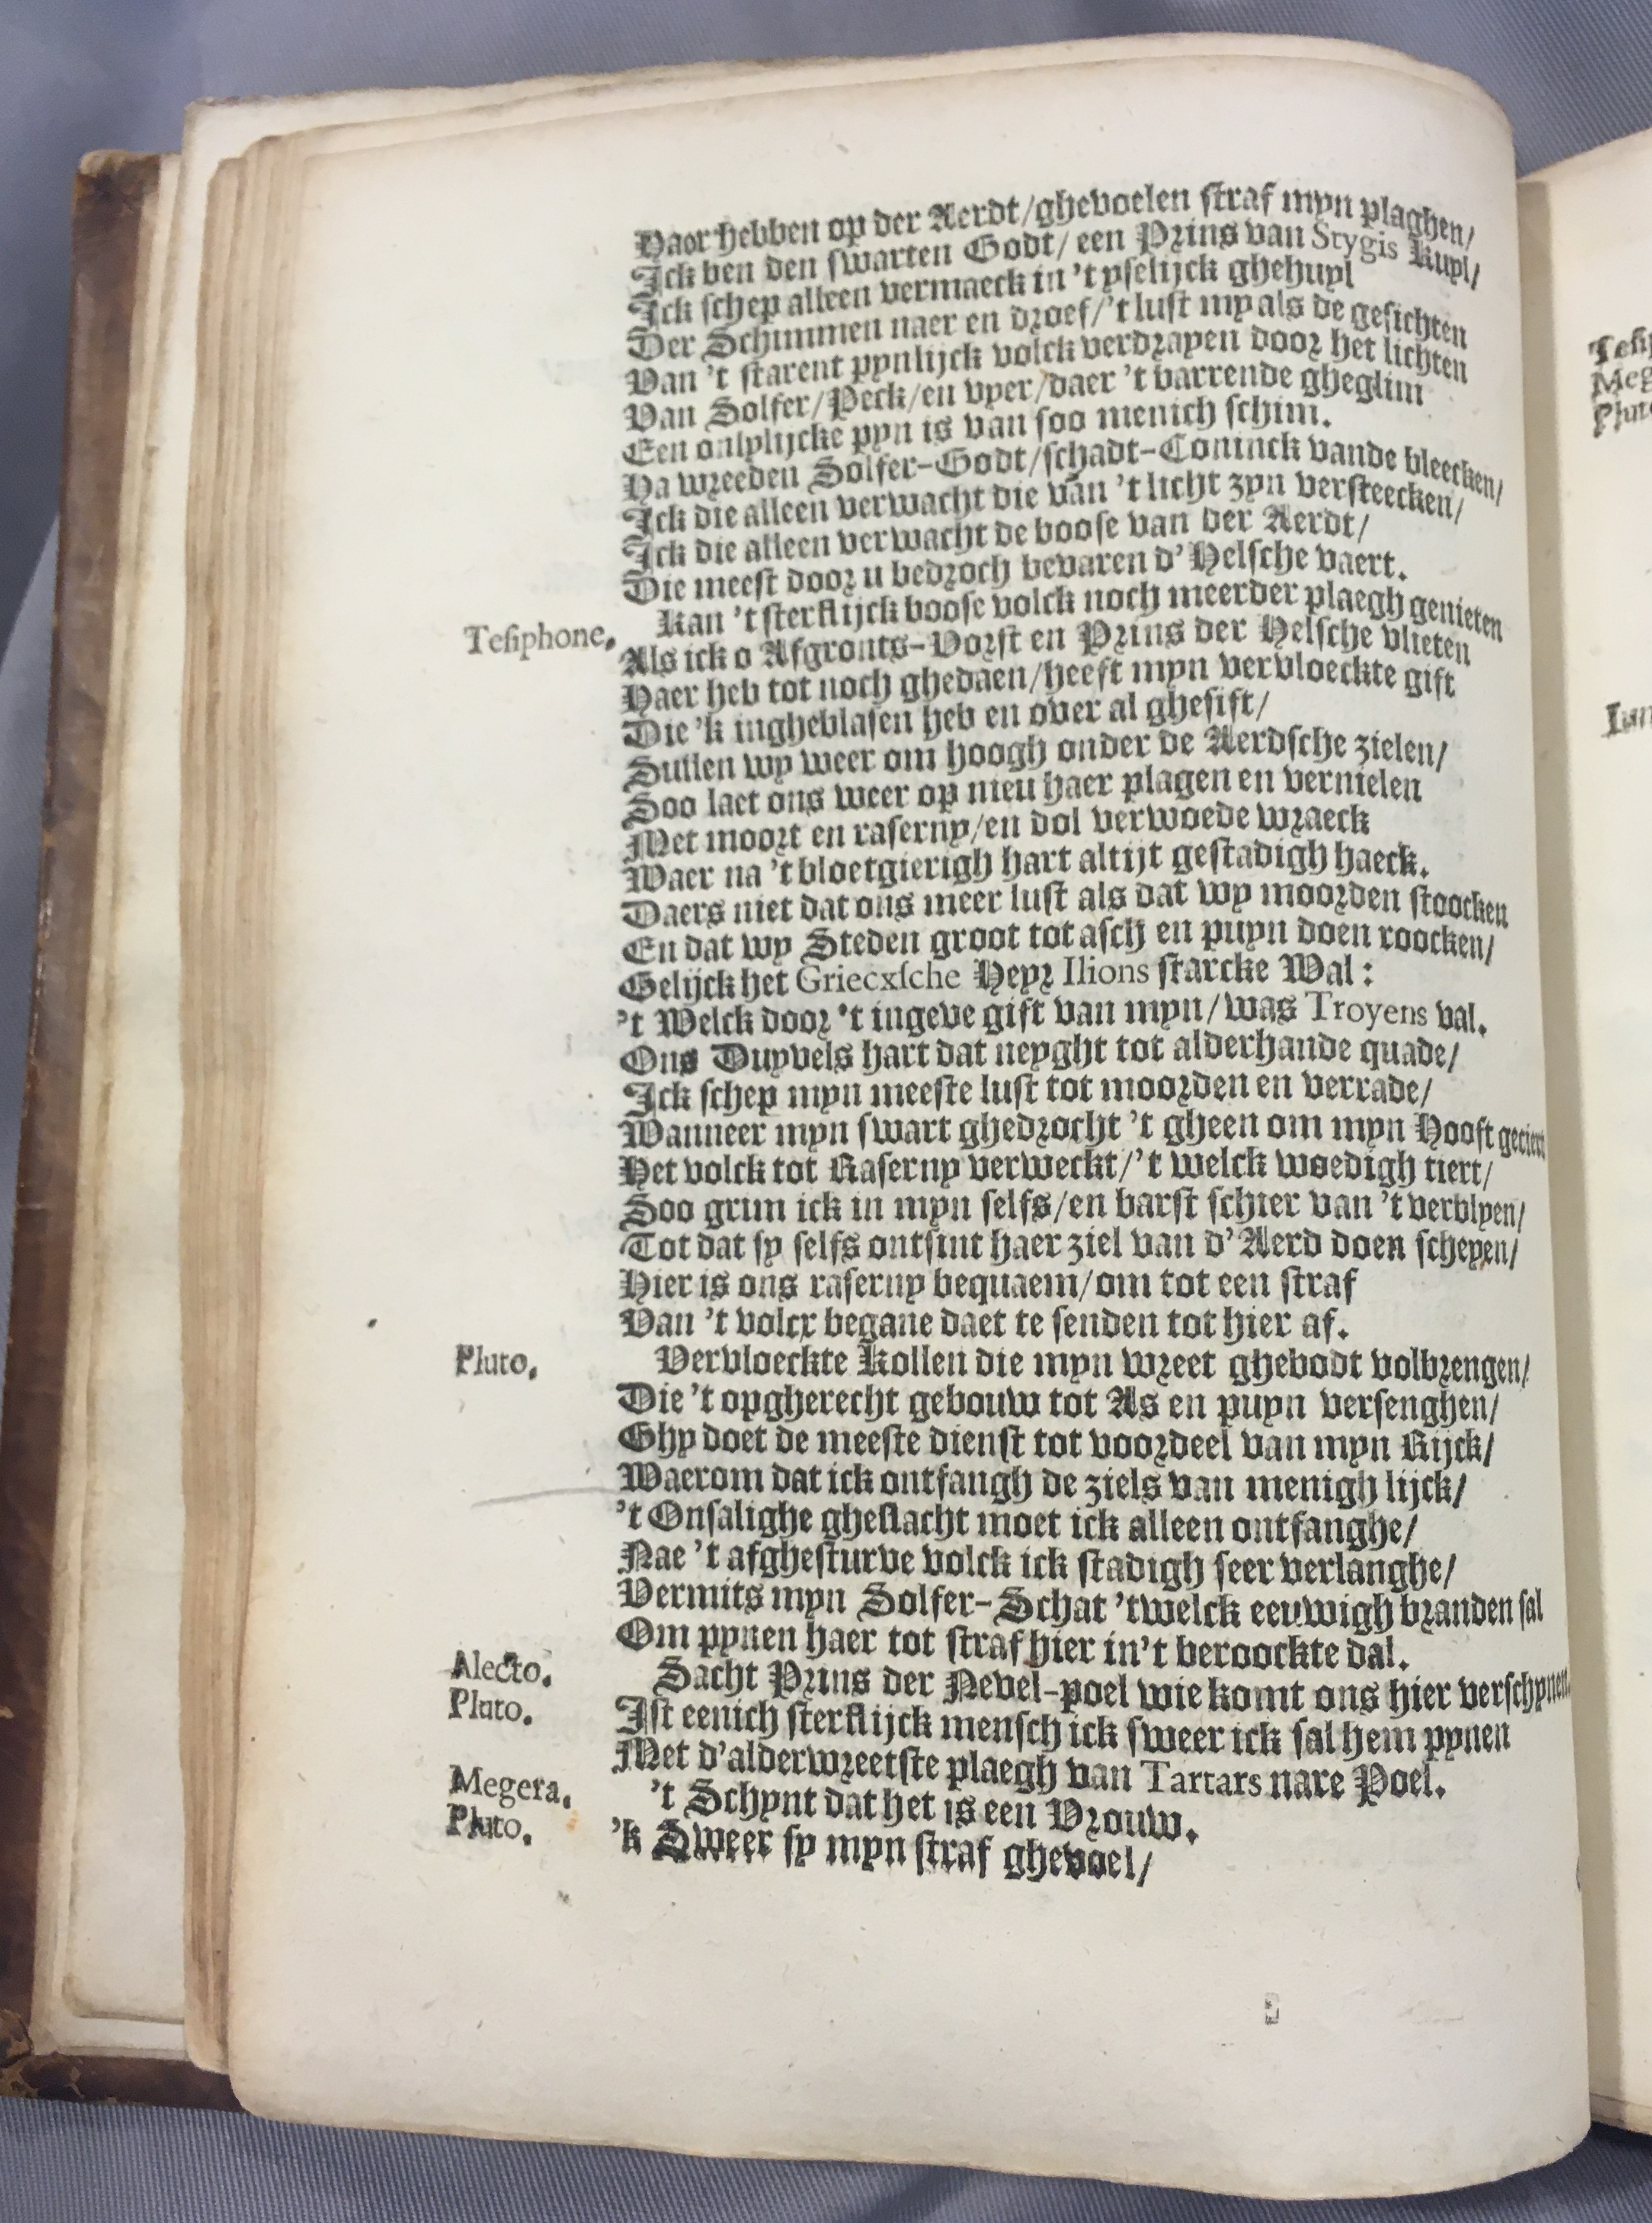 Haor hebben op der Aerdt/ghevoelen straf myn plaghen/
Ick ben den swarten Godt/ een Prins van Stygis Kuyl/
Ick schep alleen vermaeck in 't yselijck ghehuyl
Der Schimmen naer en droef/'t lust my als de gesichten
Van 't starent pynlijck volck verdrayen door het lichten
Van Solfer/Peck/en vyer/daer 't barrende gheglim
Een onlylijcke pyn is van soo menich schim.
Ha wreeden Solfer-Godt/schadt-Coninck vande bleecken/
Ick die alleen verwacht die van 't licht zyn versteecken/
Ick die alleen verwacht de boose van der Aerdt/
Die meest door u bedroch bevaren d'Helsche vaert.
Tesiphone. Kan 't sterflijck boose volck noch meerder plaegh genieten
Als ick o Afgronts-Vorst en Prins der Helsche vlieten
Haer heb tot noch ghedaen/heeft myn vervloeckte gift
Die 'k ingheblasen heb en over al ghesift/
Sullen wy weer om hoogh onder de Aerdsche zielen/
Soo laet ons weer op nieu haer plagen en vernielen
Met moort en raserny/en dol verwoede wraeck
Waer na 't bloetgierigh hart altijt gestadigh haeck.
Daers niet dat ons meer lust als dat wy moorden stoocken
En dat wy Steden groot tot asch en puyn doen roocken/
Gelijck het Griecxsche Heyr Ilions starcke Wal:
't Welck door 't ingeve gift van myn/was Troyens val.
Ons Duyvels hart dat neyght tot alderhande quade/
Ick schep myn meeste lust tot moorden en verrade/
Wanneer myn swart ghedrocht 't gheen om myn Hooft geciert
Het volck tot Raserny verweckt/'t welck woedigh tiert/
Soo grim ick in myn selfs/en barst schier van 't verblyen/
Tot dat sy selfs ontsint haer ziel van d'Aerd doen scheyen/
Hier is ons raserny bequaem/om tot een straf
Van 't volcx begane daet te senden tot hier af.
Pluto. Vervloeckte Kollen die myn wreet ghebodt volbrengen/
Die 't opgherecht gebouw tot As en puyn versenghen/
Ghy doet de meeste dienst tot voordeel van myn Rijck/
Waerom dat ick ontfangh de ziels van menigh lijck/
't Onsalighe gheslacht moet ick alleen ontfanghe/
Nae 't afghesturve volck ick stadigh seer verlanghe/
Vermits myn Solfer-Schat 'twelck eeuwigh branden sal
Om pynen haer tot straf hier in't beroockte dal.
Alecto. Sacht Prins der Nevel-poel wie komt ons hier verschynen.
Pluto. Ist eenich sterflijck mensch ick sweer ick sal hem pynen
Met d'alderwreetste plaegh van Tartars nare Poel.
Megera. 't Schynt dat het is een Vrouw.
Pluto. 'k Sweer sy myn straf ghevoel/
Meg